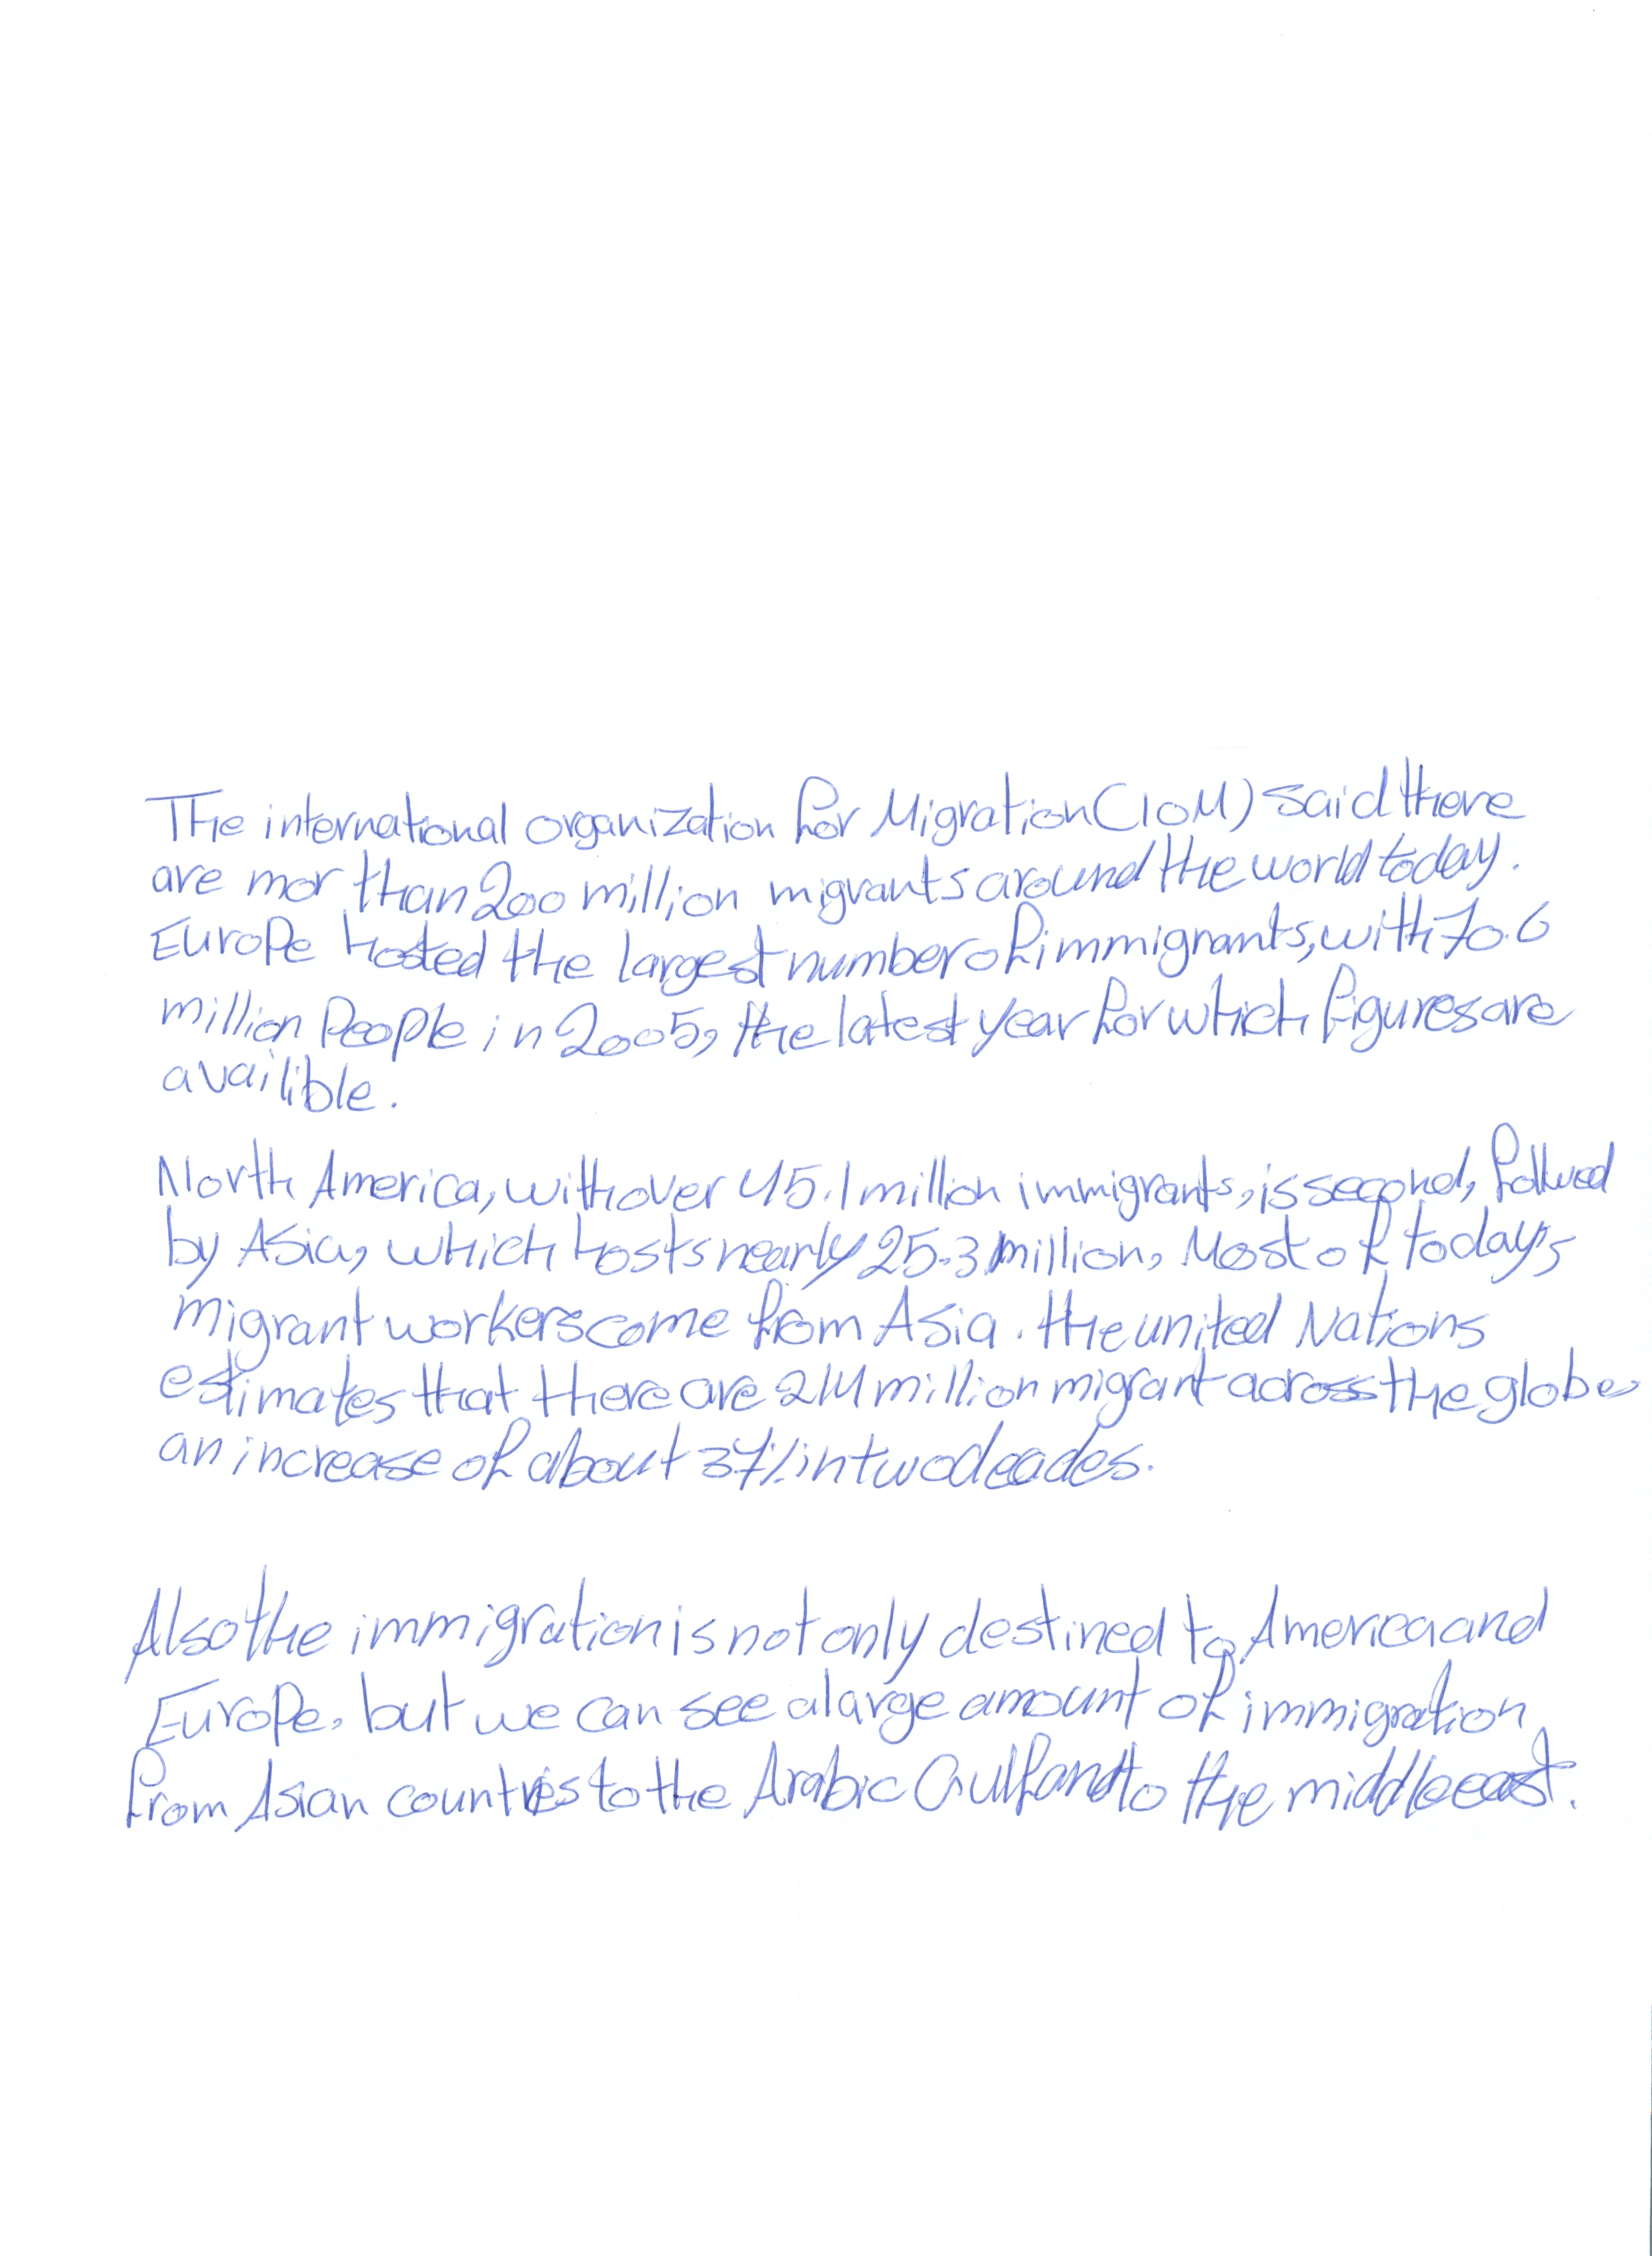 The international organization for Migration (IOM) said there
are mor than 200 million migrants around the world today.
Europe hosted the largest number of immigrants, with 70.6
million People in 2005, the latest year for which figures are
availible.
North America, with over 45.1 million immigrants, is second, follwed
by Asia, which hosts nearly 25.3 million, Most of today's
migrant workers come from Asia. the united Nations
estimates that there are 214 million migrant across the globe,
an increase of about 37% in two deades.
Also the immigration is not only destined to America and
Europe, but we can see a large amount of immigration
from Asian countries to the Arabic Gulf and to the middle east.